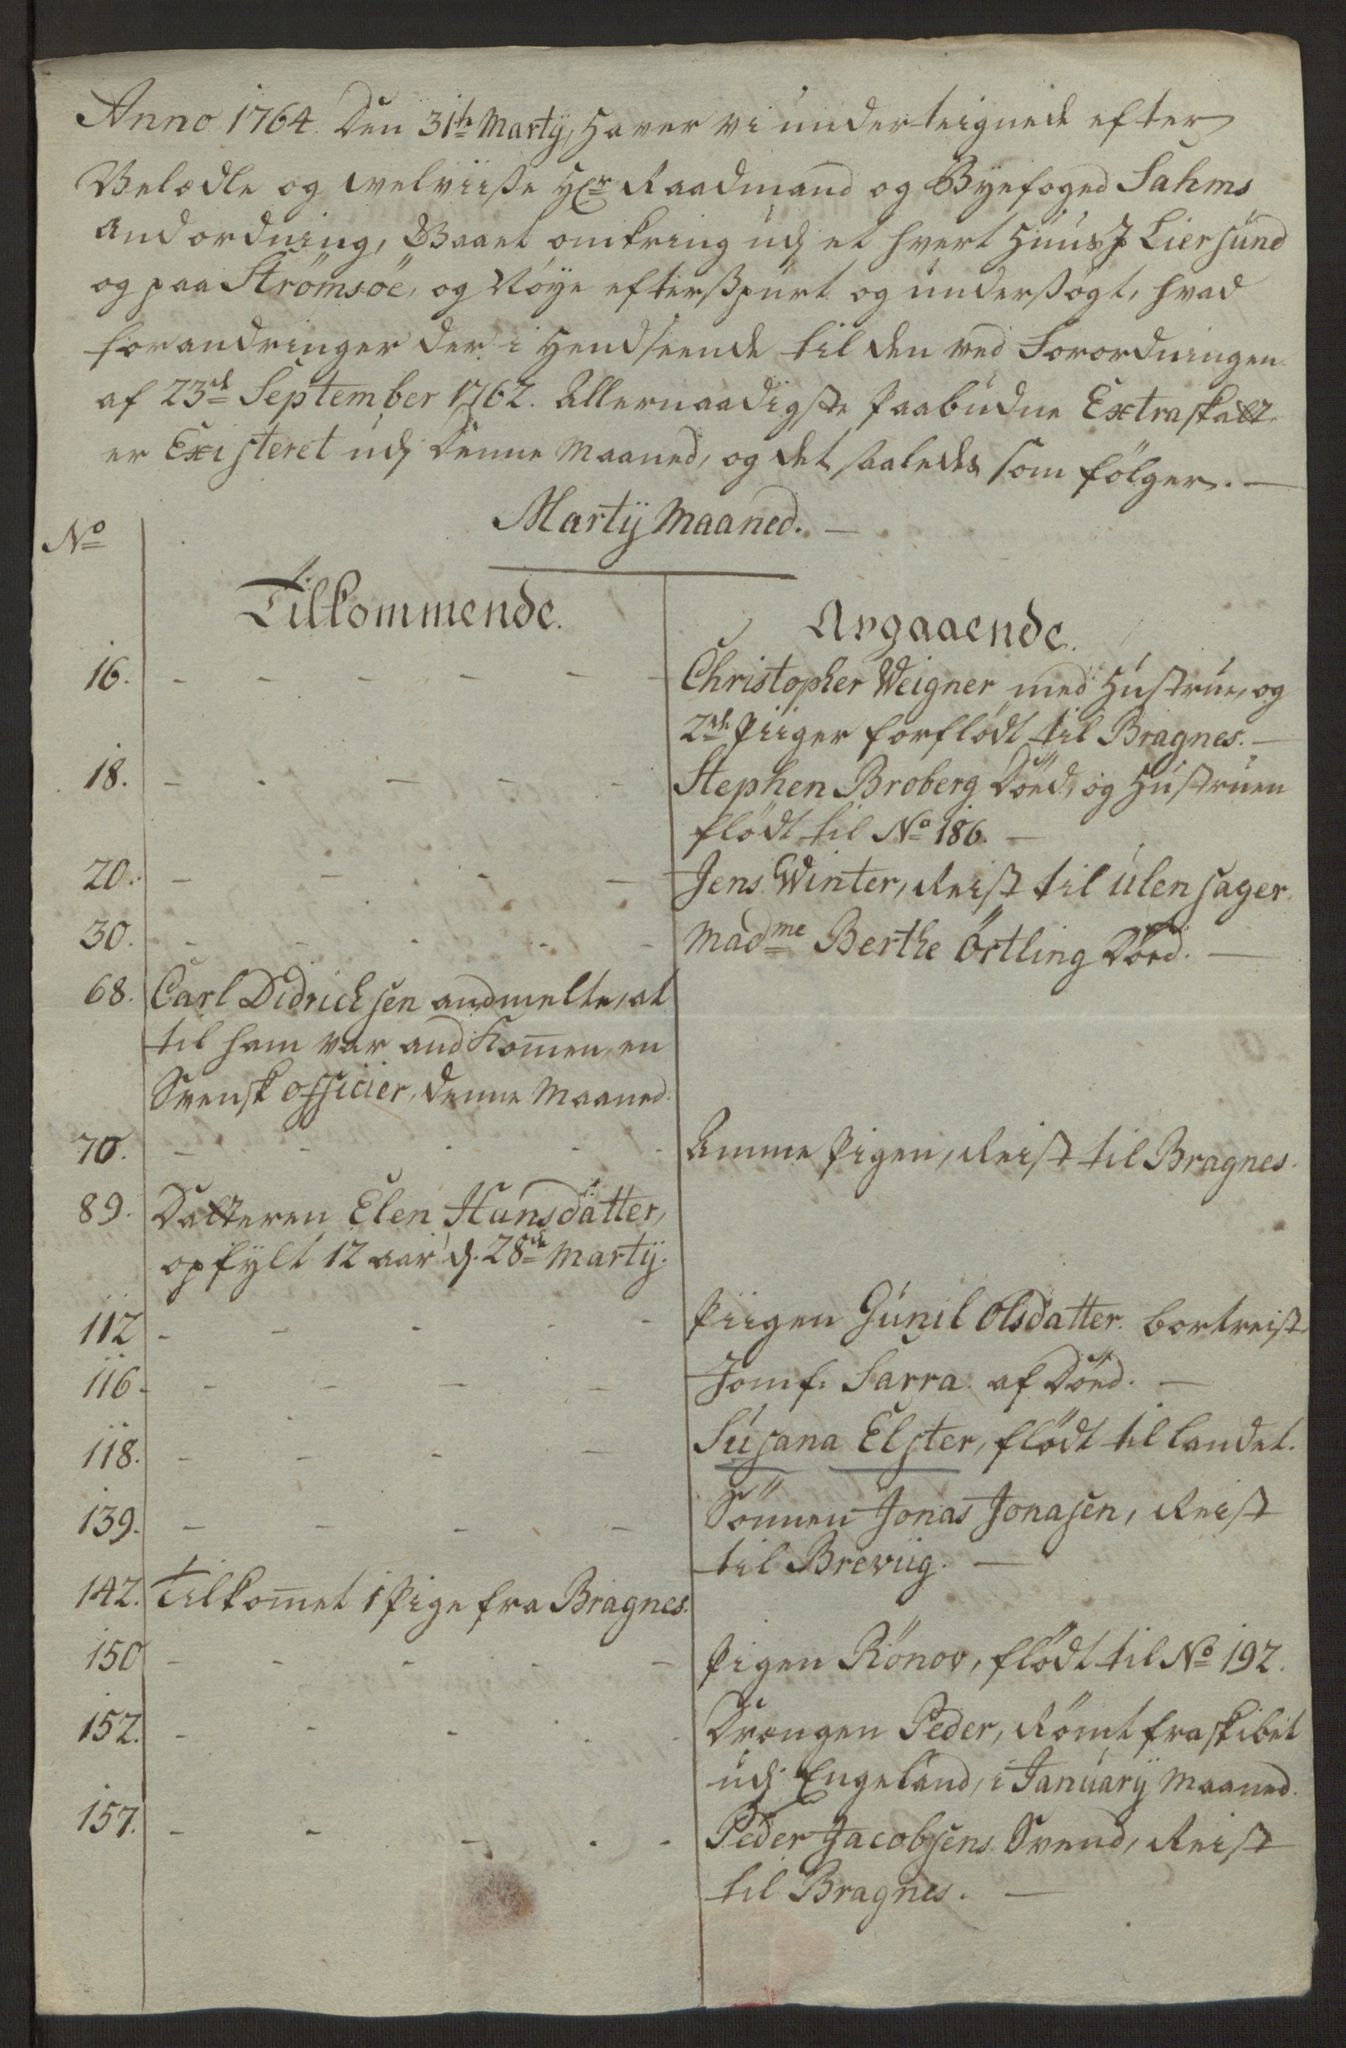 Anno 1764. Den 31te Martij, Haver vi underteignede efter
Velædle og velviise Hr Raadmand og Byefoged Sahms
Andordning, Været omkring udj et hvert Huus J Liersund
og paa Strömsöe, og Nöye efterspurt og undersögt, hvad
forandringer der i Hendseende til den ved Forordningen
af 23de September 1762. Allernaadigste Paabudne Extraskatt
er Existeret udj Denne Maaned, og det saaledes som fölger. —
Martij Maaned. —
No
Tilkommende. Avgaaende.
16. - - - - - - Christopher Weigner med Hustrue, og
2de Piiger forflödt til Bragnes. —
18. - - - - - Stephen Broberg Döed, og Hustruen
flödt til No 186. —
20. - - - - Jens Winter, Reist til Ulensager.
30. - - - - - Madme Berthe Örtling Död. —
68. Carl Didrichsen andmelte, at
til ham var and Komen, en
Svensk officier, denne Maaned.
70. - - - - - Amme Pigen, Reist til Bragnes.
89. Datteren Elen Hansdatter,
opfylt 12 aar d. 28de Martij.
112 - - - - - Piigen Gunil Olsdatter. bortreist
116. - - - - Jomf. Sarra af Död. —
118. - - - - Susana Elster, flödt til landet.
139. - - - - Sönnen Jonas Jonasen, Reist
til Breviig. —
142. Tilkomet 1 Pige fra Bragnes.
150 - - - - - Pigen Rönov, flödt til No 192.
152. - - - - Drengen Peder, Römt fra skibet
udj Engeland, i Januarij Maaned.
157. - - - - - Peder Jacobsens Svend, Reist
til Bragnes. —